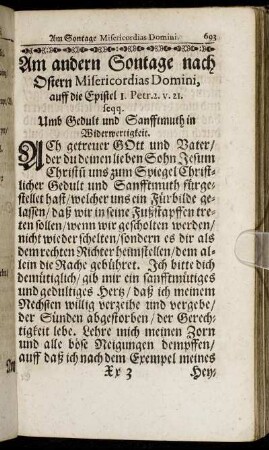 Am Sontage Misericordias Domini. 693
Am andern Sontage nach
Ostern Misericordias Domini,
auff die Epistel 1. Petr. 2. v. 21.
seqq.
Umb Gedult und Sanfftmuth in
Widerwertigkeit.
ACh getreuer GOtt und Vater/
der du deinen lieben Sohn Jesum
Christũ uns zum Spiegel Christ-
licher Gedult und Sanfftmuth fürge-
stellet hast/ welcher uns ein Fürbilde ge-
lassen/ daß wir in seine Fußstapffen tre-
ten sollen/ wenn wir gescholten werden/
nicht wieder schelten/ sondern es dir als
dem rechten Richter heimstellen/ dem al-
lein die Rache gebühret. Ich bitte dich
demütiglich/ gib mir ein sanfftmütiges
und gedultiges Hertz/ daß ich meinem
Nechsten willig verzeihe und vergebe/
der Sünden abgestorben/ der Gerech-
tigkeit lebe. Lehre mich meinen Zorn
und alle böse Neigungen dempffen/
auff daß ich nach dem Exempel meines
Xx 3 Hey-